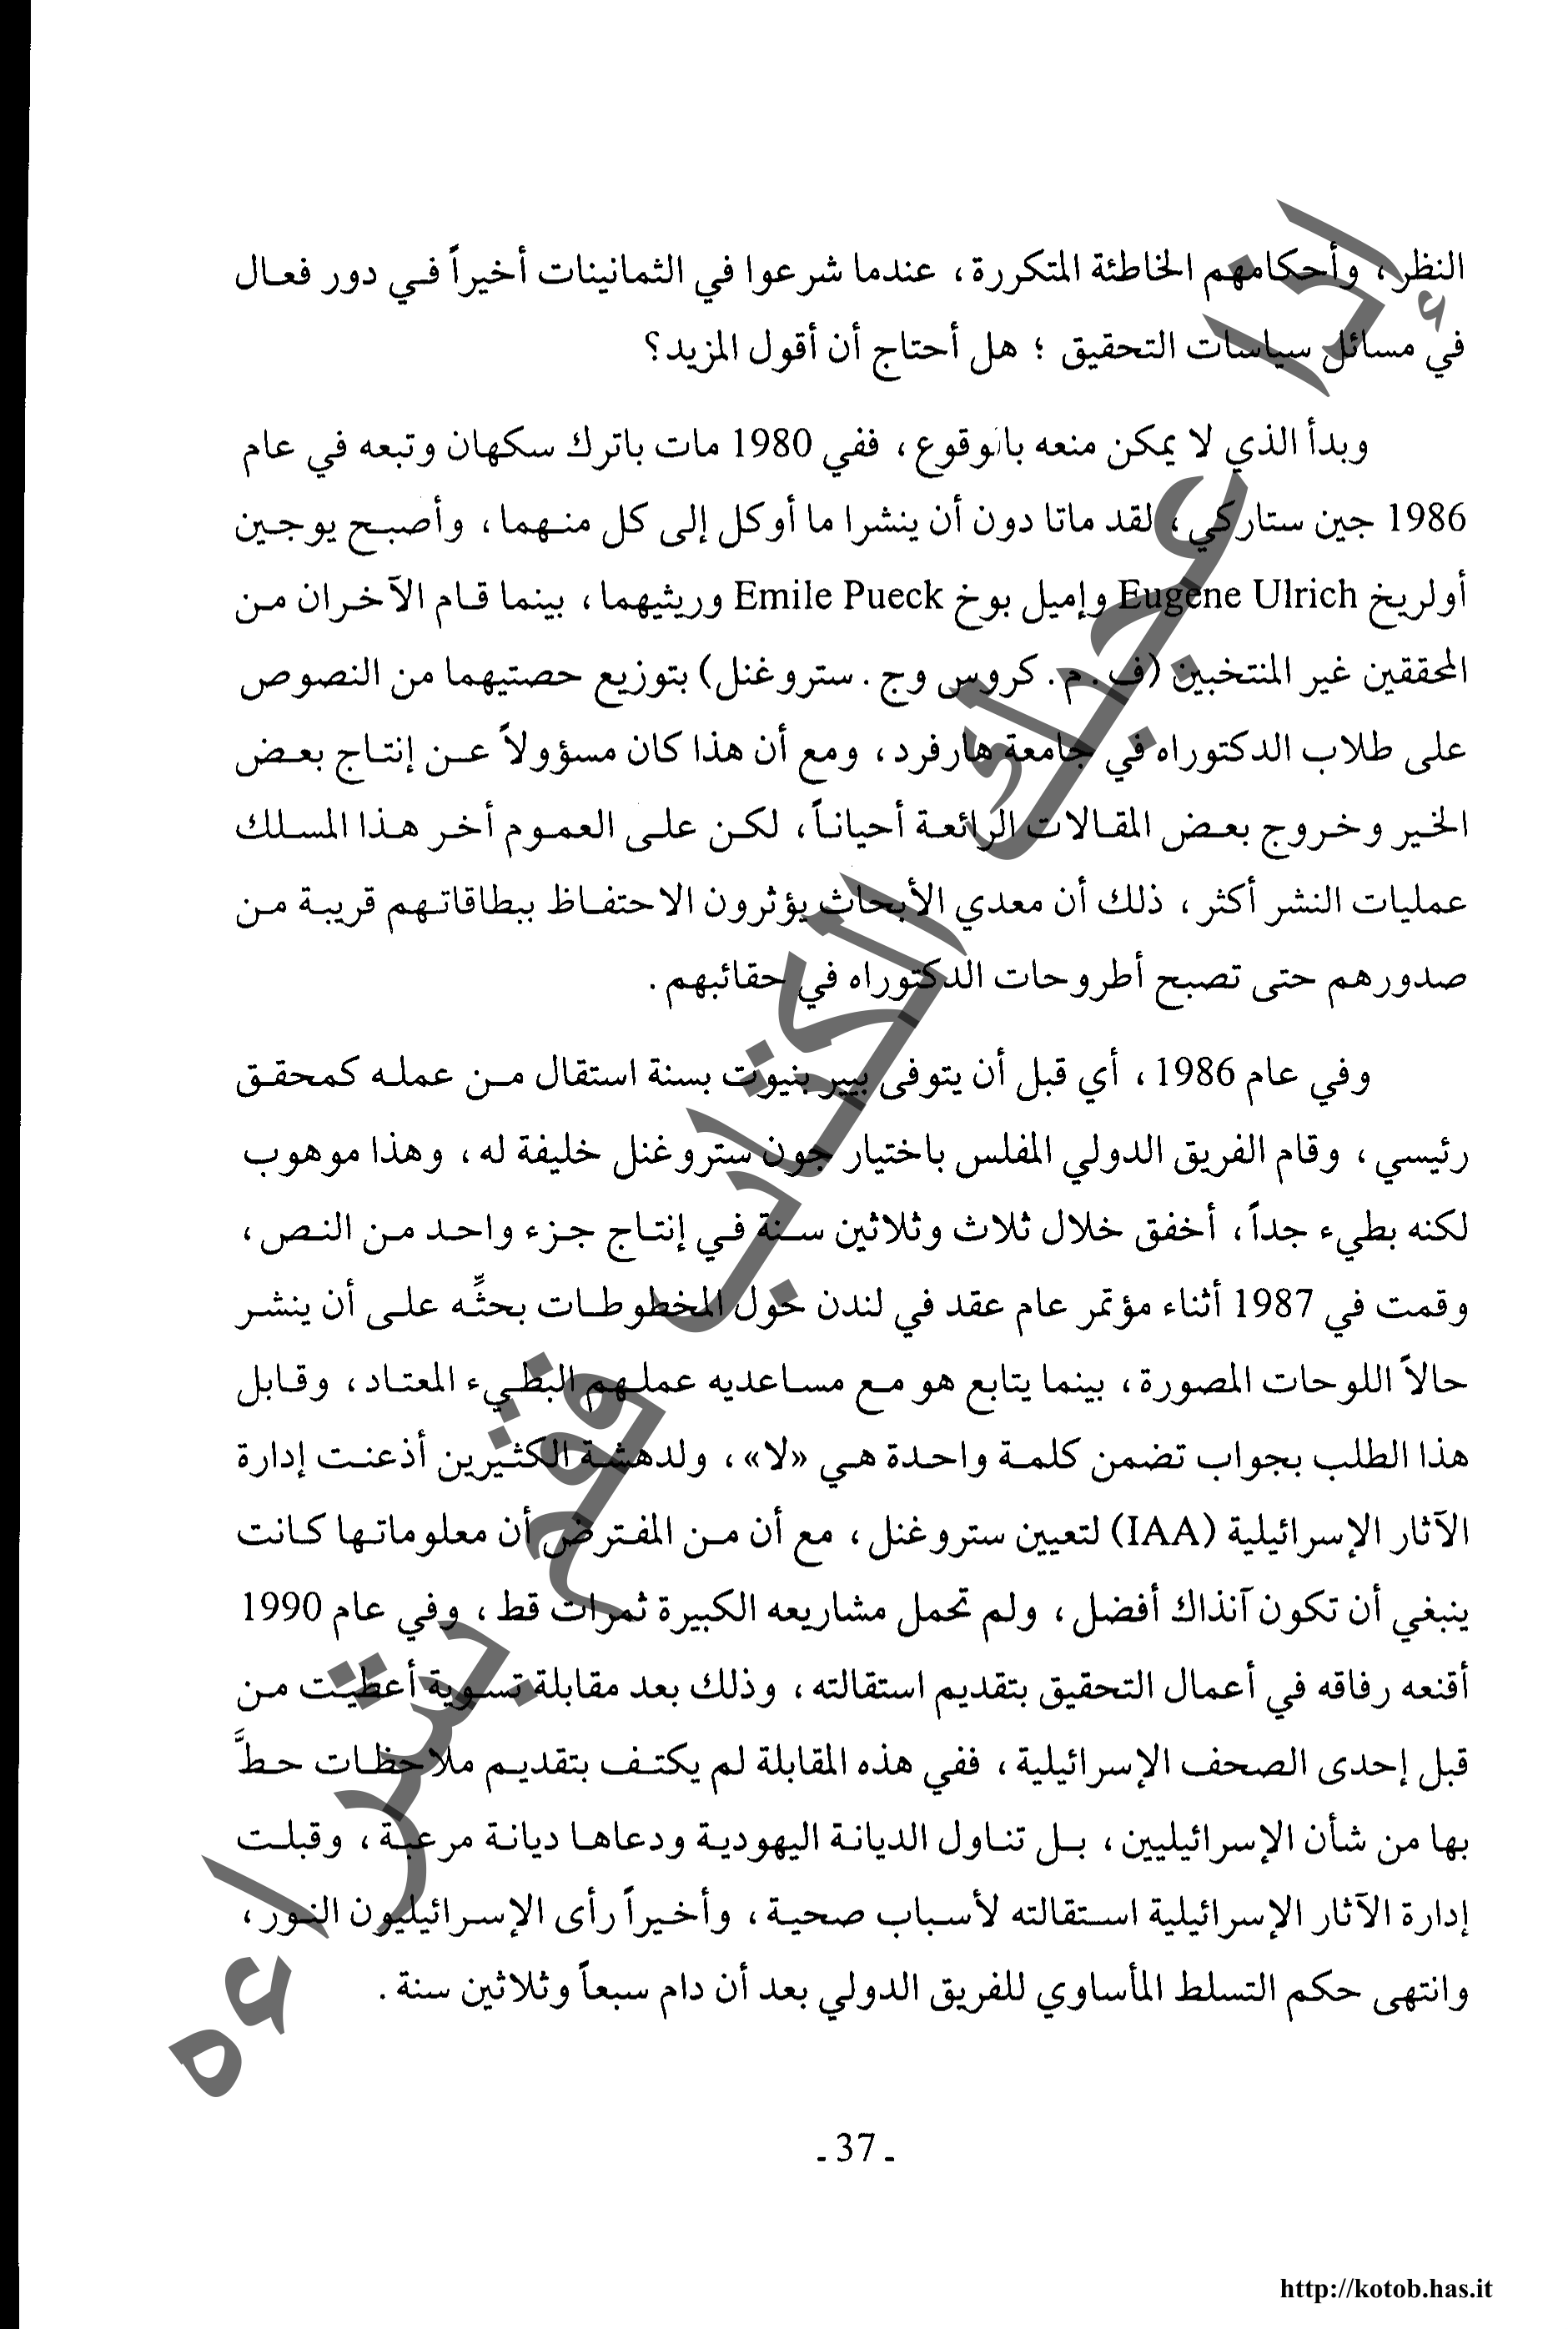 النظر، وأحكامهم الخاطئة المتكررة، عندما شرعوا في الثمانينات أخيراً في دور فعال
في مسائل سياسات التحقيق ؛ هل أحتاج أن أقول المزيد؟
وبدأ الذي لا يمكن منعه بالوقوع، ففي 1980 مات باترك سكهان وتبعه في عام
1986 جين ستاركي، لقد ماتا دون أن ينشرا ما أوكل إلى كل منهما، وأصبح يوجين
أولريخ Eugene Ulrich وإميل بوخ Emile Pueck وريثيهما، بينما قام الآخران من
المحققين غير المنتخبين (ف. م. كروس وج. ستروغنل) بتوزيع حصتيهما من النصوص
على طلاب الدكتوراه في جامعة هارفرد، ومع أن هذا كان مسؤولاً عن إنتاج بعض
الخير وخروج بعض المقالات الرائعة أحياناً، لكن على العموم أخر هذا المسلك
عمليات النشر أكثر، ذلك أن معدي الأبحاث يؤثرون الاحتفاظ ببطاقاتهم قريبة من
صدورهم حتى تصبح أطروحات الدكتوراه في حقائبهم.
وفي عام 1986، أي قبل أن يتوفى بيير بنيوت بسنة استقال من عمله كمحقق
رئيسي، وقام الفريق الدولي المفلس باختيار جون ستروغنل خليفة له، وهذا موهوب
لكنه بطيء جداً، أخفق خلال ثلاث وثلاثين سنة في إنتاج جزء واحد من النص،
وقمت في 1987 أثناء مؤتمر عام عقد في لندن حول المخطوطات بحثِّه على أن ينشر
حالاً اللوحات المصورة، بينما يتابع هو مع مساعديه عملهم البطيء المعتاد، وقابل
هذا الطلب بجواب تضمن كلمة واحدة هي «لا»، ولدهشة الكثيرين أذعنت إدارة
الآثار الإسرائيلية (IAA) لتعيين ستروغنل، مع أن من المفترض أن معلوماتها كانت
ينبغي أن تكون آنذاك أفضل، ولم تحمل مشاريعه الكبيرة ثمرات قط، وفي عام 1990
أقنعه رفاقه في أعمال التحقيق بتقديم استقالته، وذلك بعد مقابلة تسوية أعطيت من
قبل إحدى الصحف الإسرائيلية، ففي هذه المقابلة لم يكتف بتقديم ملاحظات حطَّ
بها من شأن الإسرائيليين، بل تناول الديانة اليهودية ودعاها ديانة مرعبة، وقبلت
إدارة الآثار الإسرائيلية استقالته لأسباب صحية، وأخيراً رأى الإسرائيليون النور،
وانتهى حكم التسلط المأساوي للفريق الدولي بعد أن دام سبعاً وثلاثين سنة.
ـ 37 ـ
http://kotob.has.it